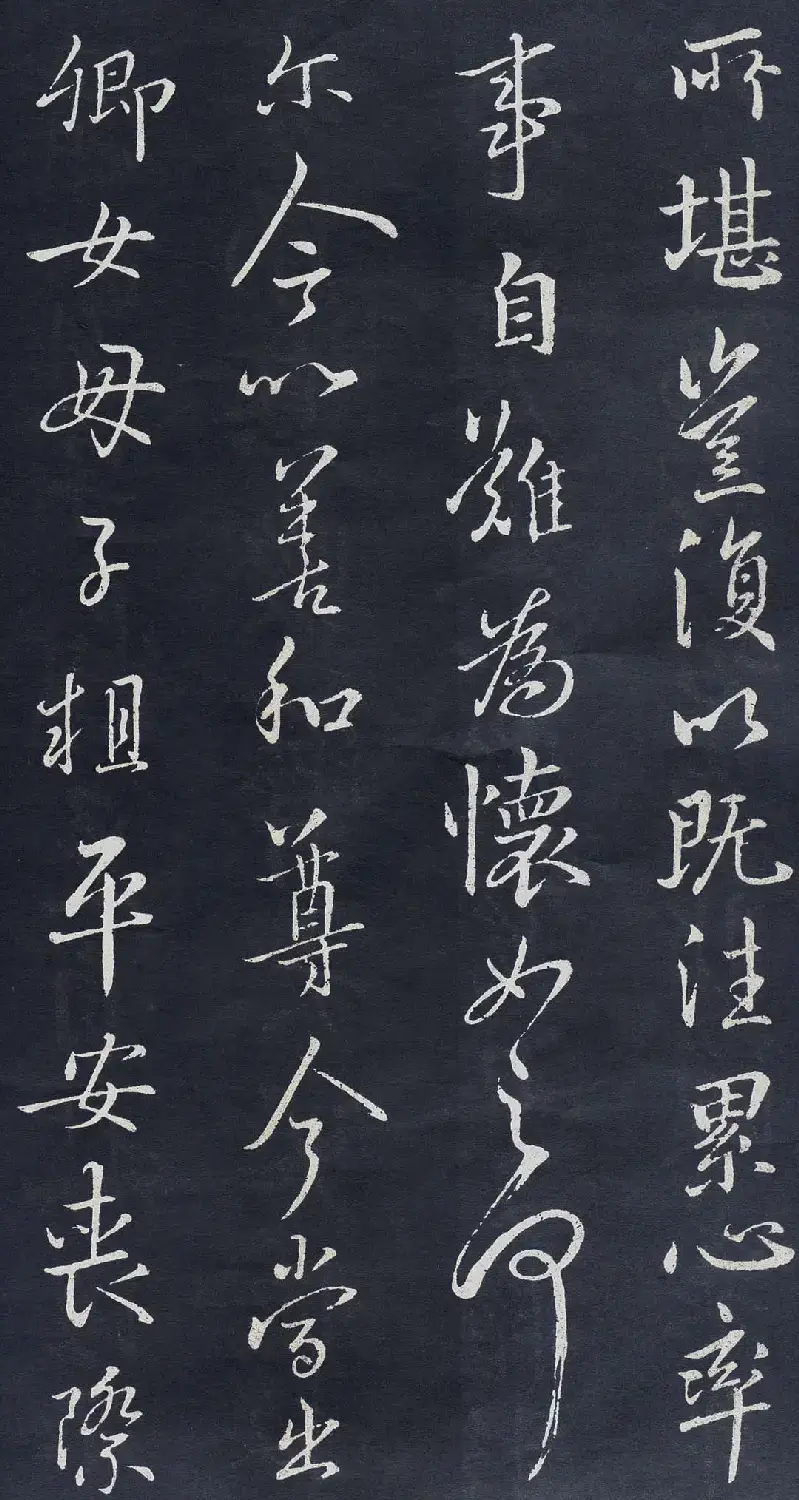 所堪豈復以既往累心率
事自難為懷如之何
尓以善和尊今當出
卿女母子粗平安喪際